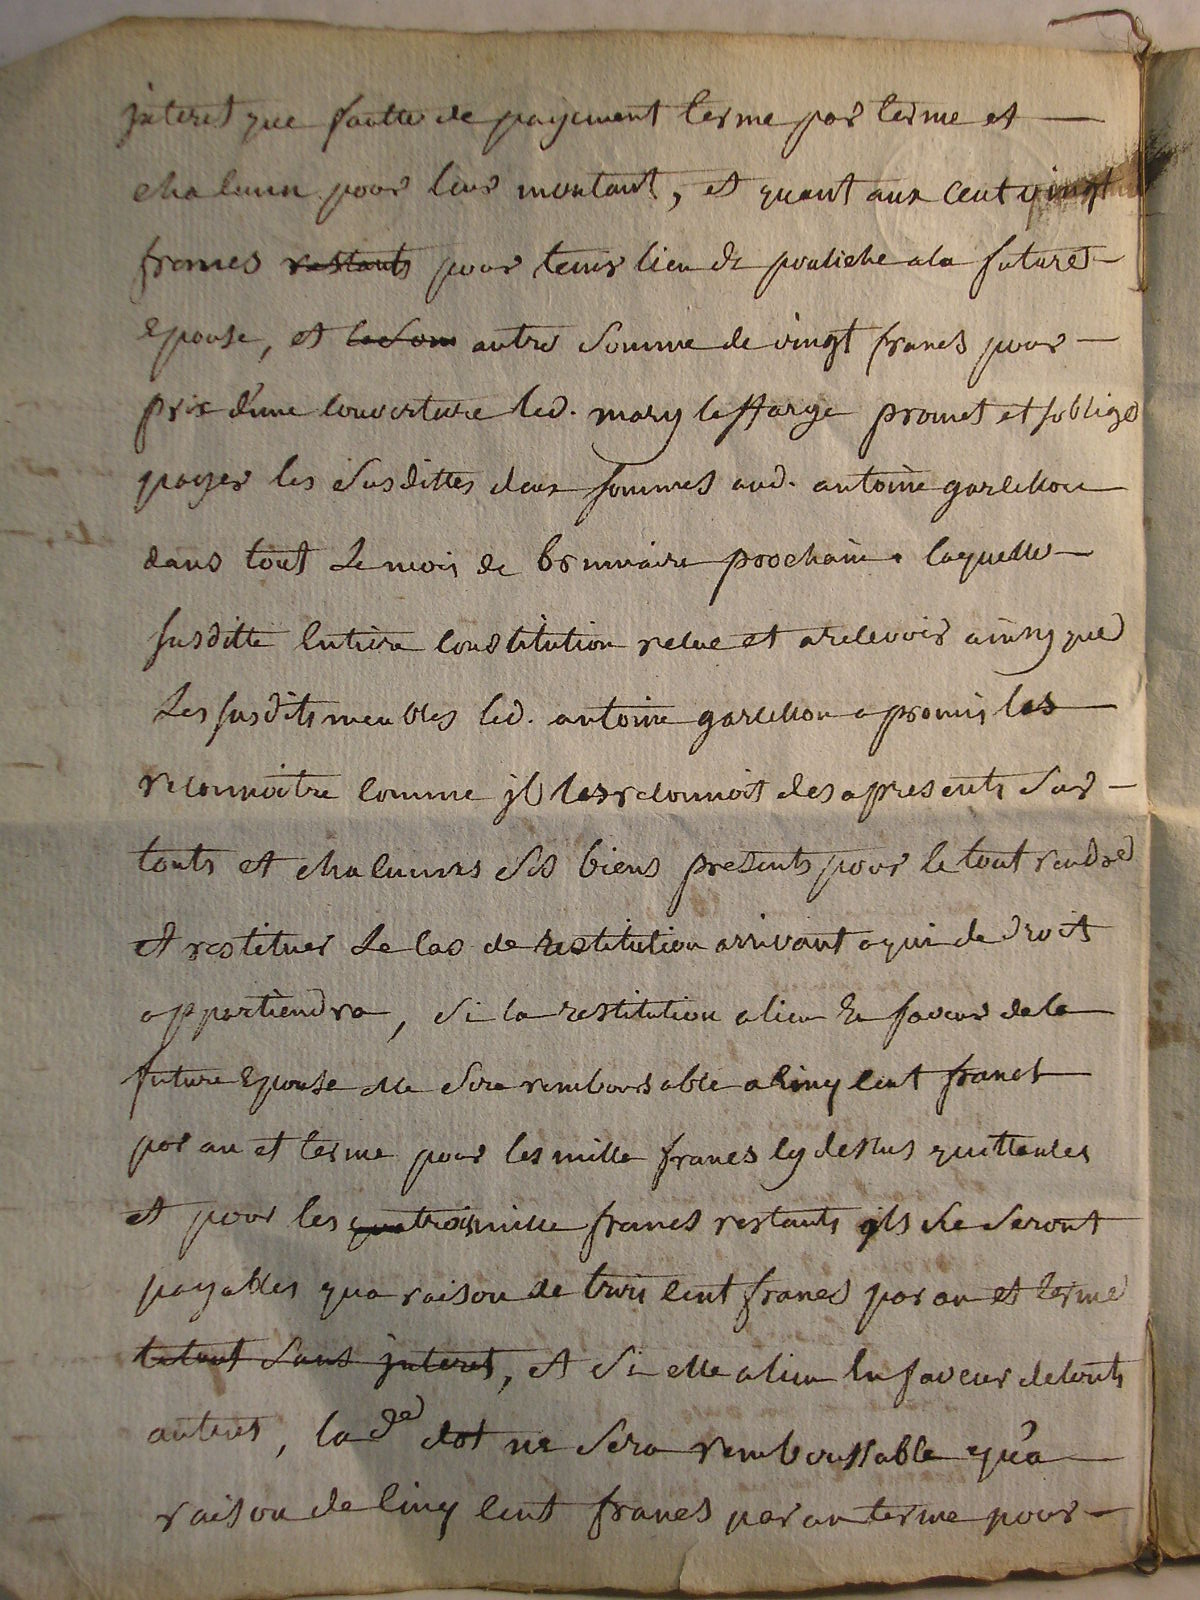 jnteret que faulte de payement terme par terme et —
chalcun pour leur montant, et quant aux cent vingt
francs restants pour tenir lieu de pouliche a la future —
Epouse, et la Som autre Somme de vingt francs pour —
prix d'une couverture led. mary leffarge promet et soblige
payer les Susdittes deux sommes aud. antoine garlellou
dans tout Le mois de brumaire prochain. laquelle —
susditte Entiere constitution recue et a recevoir ainsy que
Les susdits meubles led. antoine garlellou a promis les —
reconnoitre comme jl les reconnoit des a presents Sur —
touts et chalcuns Ses biens presents pour le tout rendre
et restituer Le cas de restitution arrivant a qui de droit
appartiendra, Si la restitution a lieu En faveur de la —
future Epouse elle Sera remboursable a cinq cent francs —
par an et terme pour les mille francs cy dessus quittancés
et pour les quatre trois mille francs restants ils Ne Seront
payables qua raison de trois cent francs par an et terme
le tout Sans jnteret, et Si elle a lieu En faveur de touts
autres, lad.e dot ne Sera remboursable qu'a —
raison de cinq cent francs par an terme pour —